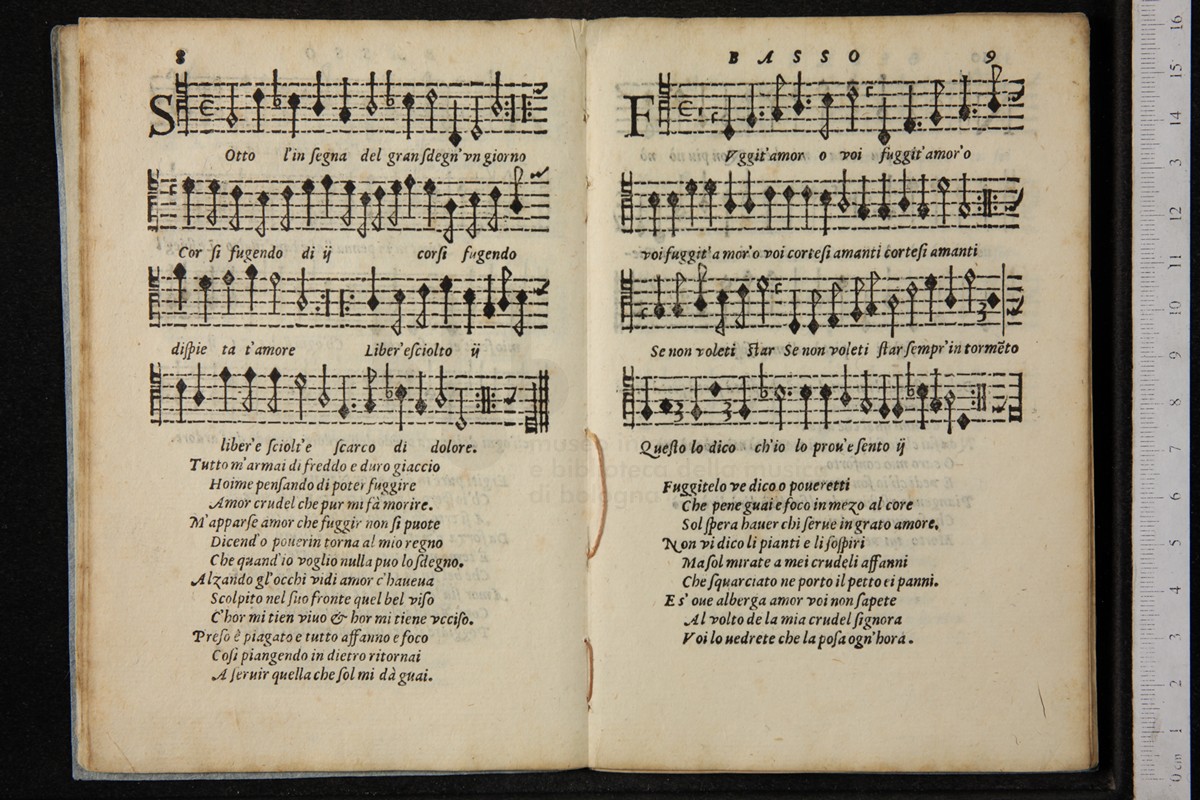 8
S
Otto l'in ſegna del gran ſdegn'vn giorno
Cor ſi fugendo di ij corſi fugendo
diſpie ta t'amore Liber'eſciolto ij
liber'e ſciolt'e ſcarco di dolore.
Tutto m'armai di freddo e duro giaccio
Hoime penſando di poter fuggire
Amor crudel che pur mi fà morire.
M'apparſe amor che fuggir non ſi puote
Dicend'o pouerin torna al mio regno
Che quand'io voglio nulla puo lo ſdegno.
Alzando gl'occhi vidi amor c'haueua
Scolpito nel ſuo fronte quel bel viſo
C'hor mi tien viuo & hor mi tiene vcciſo.
Preſo è piagato e tutto affanno e foco
Coſi piangendo in dietro ritornai
A ſeruir quella che ſol mi dà guai.
BASSO 9
F
Vggit'amor o voi fuggit'amor'o
voi fuggit'a mor'o voi corteſi amanti corteſi amanti
Se non voleti ſtar Se non voleti ſtar ſempr'in tormẽto
Queſto lo dico ch'io lo prou'e ſento ij
Fuggitelo ve dico o poueretti
Che pene guai e foco in mezo al core
Sol ſpera hauer chi ſerue ingrato amore.
Non vi dico li pianti e li ſoſpiri
Ma ſol mirate a mei crudeli affanni
Che ſquarciato ne porto il petto ei panni.
E s'oue alberga amor voi non ſapete
Al volto de la mia crudel ſignora
Voi lo uedrete che la poſa ogn'hora.
museo in
e biblioteca della musica
di bologna
0 cm 1 2 3 4 5 6 7 8 9 10 11 12 13 14 15 16